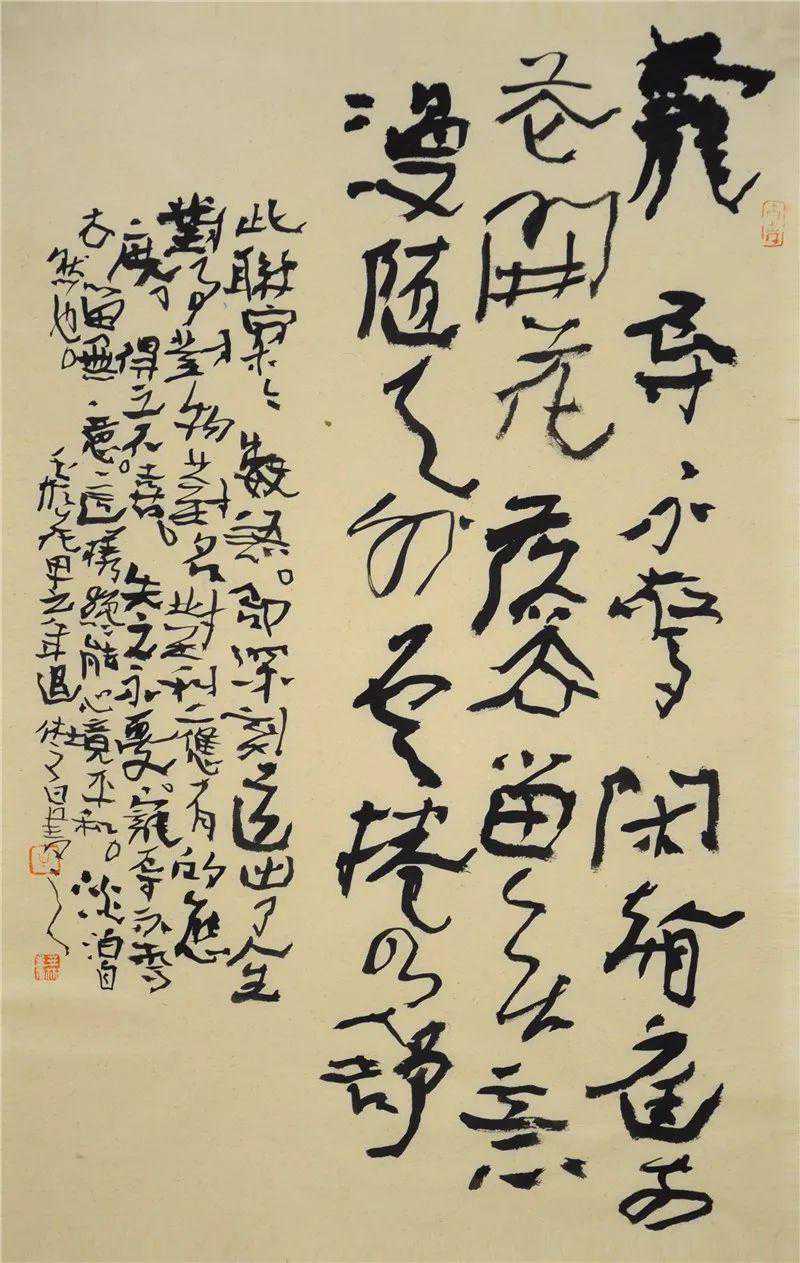 寵辱不驚閑看庭前
花開花落去留無意
漫隨天外雲捲雲舒
此聯寥寥數語。即深刻道出了人生
對事對物對名對利應有的態
度。得之不喜。失之不憂。寵辱不驚
去留無意。這樣纔能心境平和。淡泊自
然也。
花甲之年退休之日書